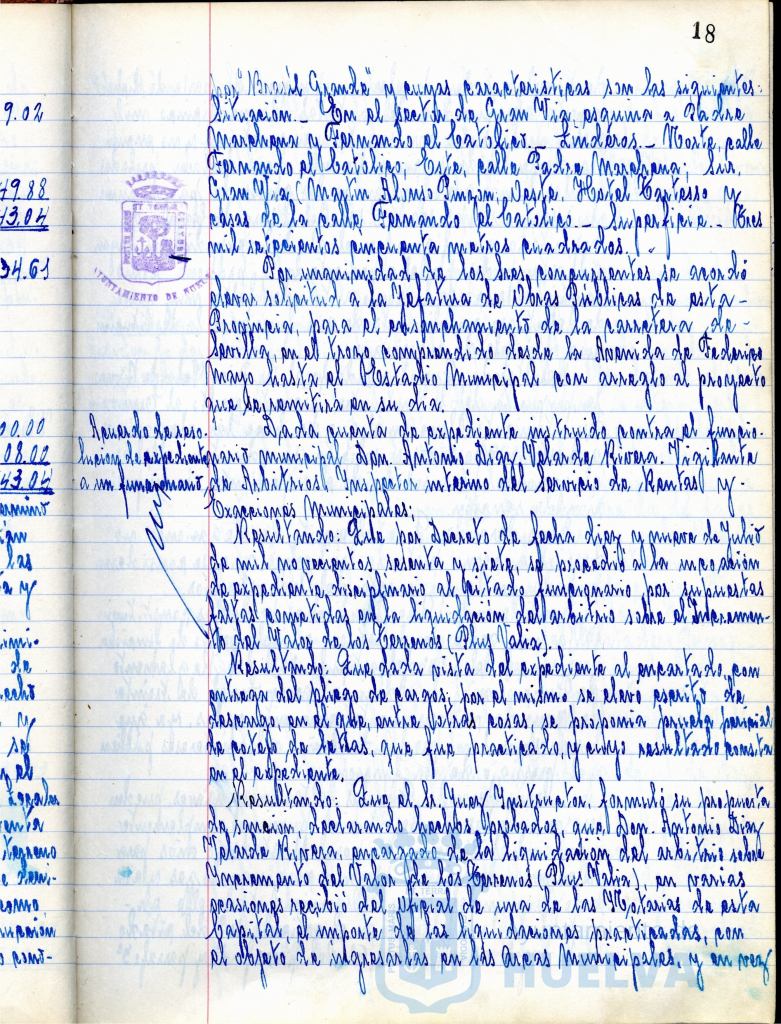 18
por "Brasil Grande" y cuyas caracteristicas son las siguientes:
Situación.- En el sector de Gran Via, esquina a Padre
Marchena y Fernando el Católico.- Linderos.- Norte, calle
Fernando el Católico; Este, calle Padre Marchena; Sur,
Gran Via (Martin Alonso Pinzón, Oeste, Hotel Tartesso y
casas de la calle Fernando el Catolico.- Superficie.- Tres
mil setecientos cincuenta metros cuadrados.
Por unanimidad de los Sres concurrentes se acordó
elevar solicitud a la Jefatura de Obras Públicas de esta-
Provincia, para el ensanchamiento de la carretera de-
Sevilla, en el trozo comprendido desde la Avenida de Federico
Mayo hasta el Estadio Municipal con arreglo al proyecto
que se remitirá en su dia.
Acuerdo de reso-
lucion de expediente
a un funcionario
Dada cuenta de expediente instruido contra el funcio-
nario municipal Don. Antonio Diaz Velarde Rivera. Vigilante
de Arbitrios, Inspector interino del Servicio de Rentas y-
Exacciones Municipales;
Resultando: Que por Decreto de fecha diez y nueve de Julio
de mil novecientos sesenta y siete, se procedió a la incoación
de expediente disciplinario al citado funcionario por supuestas
faltas cometidas en la liquidación del arbitrio sobre el Incremen-
to del Valor de los Terrenos (Plus Valia).
Resultando: Que dada vista del expediente al encartado, con
entrega del pliego de cargos, por el mismo se elevo escrito de
descargo, en el que, entre otras cosas, se proponia prueba pericial
de cotejo de letras, que fue practicado, y cuyo resultado consta
en el expediente.
Resultando: Que el Sr. Juez Instructor, formuló su propuesta
de sanción, declarando hechos probados, que Don. Antonio Diaz
Velarde Rivera, encargado de la liquidación del arbitrio sobre
Incremento del Valor de los Terrenos (Plus Valia), en varias
ocasiones recibió del oficial de una de las Notarias de esta
Capital, el importe de las liquidaciones practicadas, con
el objeto de ingresarlas en las Arcas Municipales, y en vez
AYUNTAMIENTO DE HUELVA
HUELVA
9.02
4988
43.04
34.61
00.00
08.00
43.04
las
y
de
y
se
y el
terreno
como